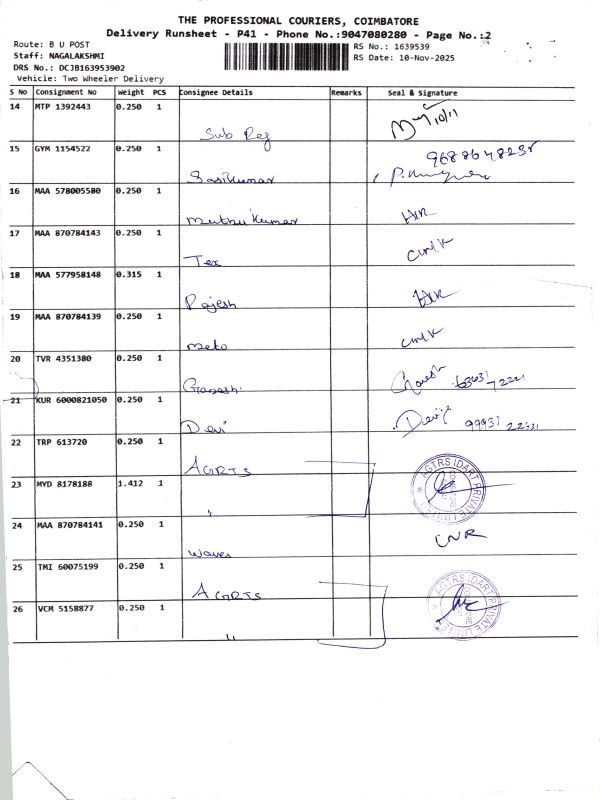 THE PROFESSIONAL COURIERS, COIMBATORE
Delivery Runsheet - P41 - Phone No.:9047080280 - Page No.:2
Route: B U POST
RS No.: 1639539
Staff: NAGALAKSHMI
RS Date: 10-Nov-2025
DRS No.: DCJB163953902
Vehicle: Two Wheeler Delivery
S No Consignment No Weight PCS Consignee Details Remarks Seal & Signature
14 MTP 1392443 0.250 1
Sub Reg 10/11
15 GYM 1154522 0.250 1
Sasikumar
16 MAA 578005580 0.250 1
Muthu Kumar
17 MAA 870784143 0.250 1
Tex
18 MAA 577958148 0.315 1
Rajesh
19 MAA 870784139 0.250 1
Meto
20 TVR 4351380 0.250 1
Ganesh
21 KUR 6000821050 0.250 1
Devi
22 TRP 613720 0.250 1
AGRTS
23 MYD 8178188 1.412 1
"
AGTRS IDART PRIVATE LIMITED
24 MAA 870784141 0.250 1
Waves
25 TMI 60075199 0.250 1
AGRTS
26 VCM 5158877 0.250 1
"
AGTRS IDART PRIVATE LIMITED